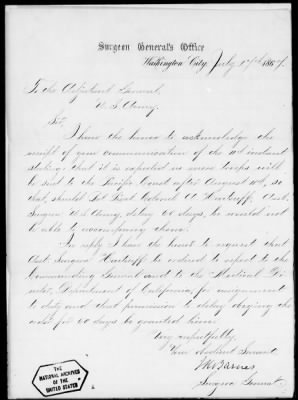 Surgeon General's Office
Washington City, July 17th, 1869.
To the Adjutant General,
U. S. Army.
Sir,
I have the honor to acknowledge the
receipt of your communication of the instant
stating that it is expected no more troops will
be sent to the Pacific Coast after August 10th, so
that, should Bvt Lieut Colonel A. Hartsuff, Asst.
Surgeon U. S. Army, delay 60 days, he would not
be able to accompany them.
In reply I have the honor to request that
Asst. Surgeon Hartsuff be ordered to report to the
Commanding General and to the Medical Di-
rector, Department of California, for assignment
to duty and that permission to delay obeying the
order for 60 days be granted him.
Very respectfully,
Your obedient Servant,
J K Barnes
Surgeon General.
THE
NATIONAL ARCHIVES
OF THE
UNITED STATES